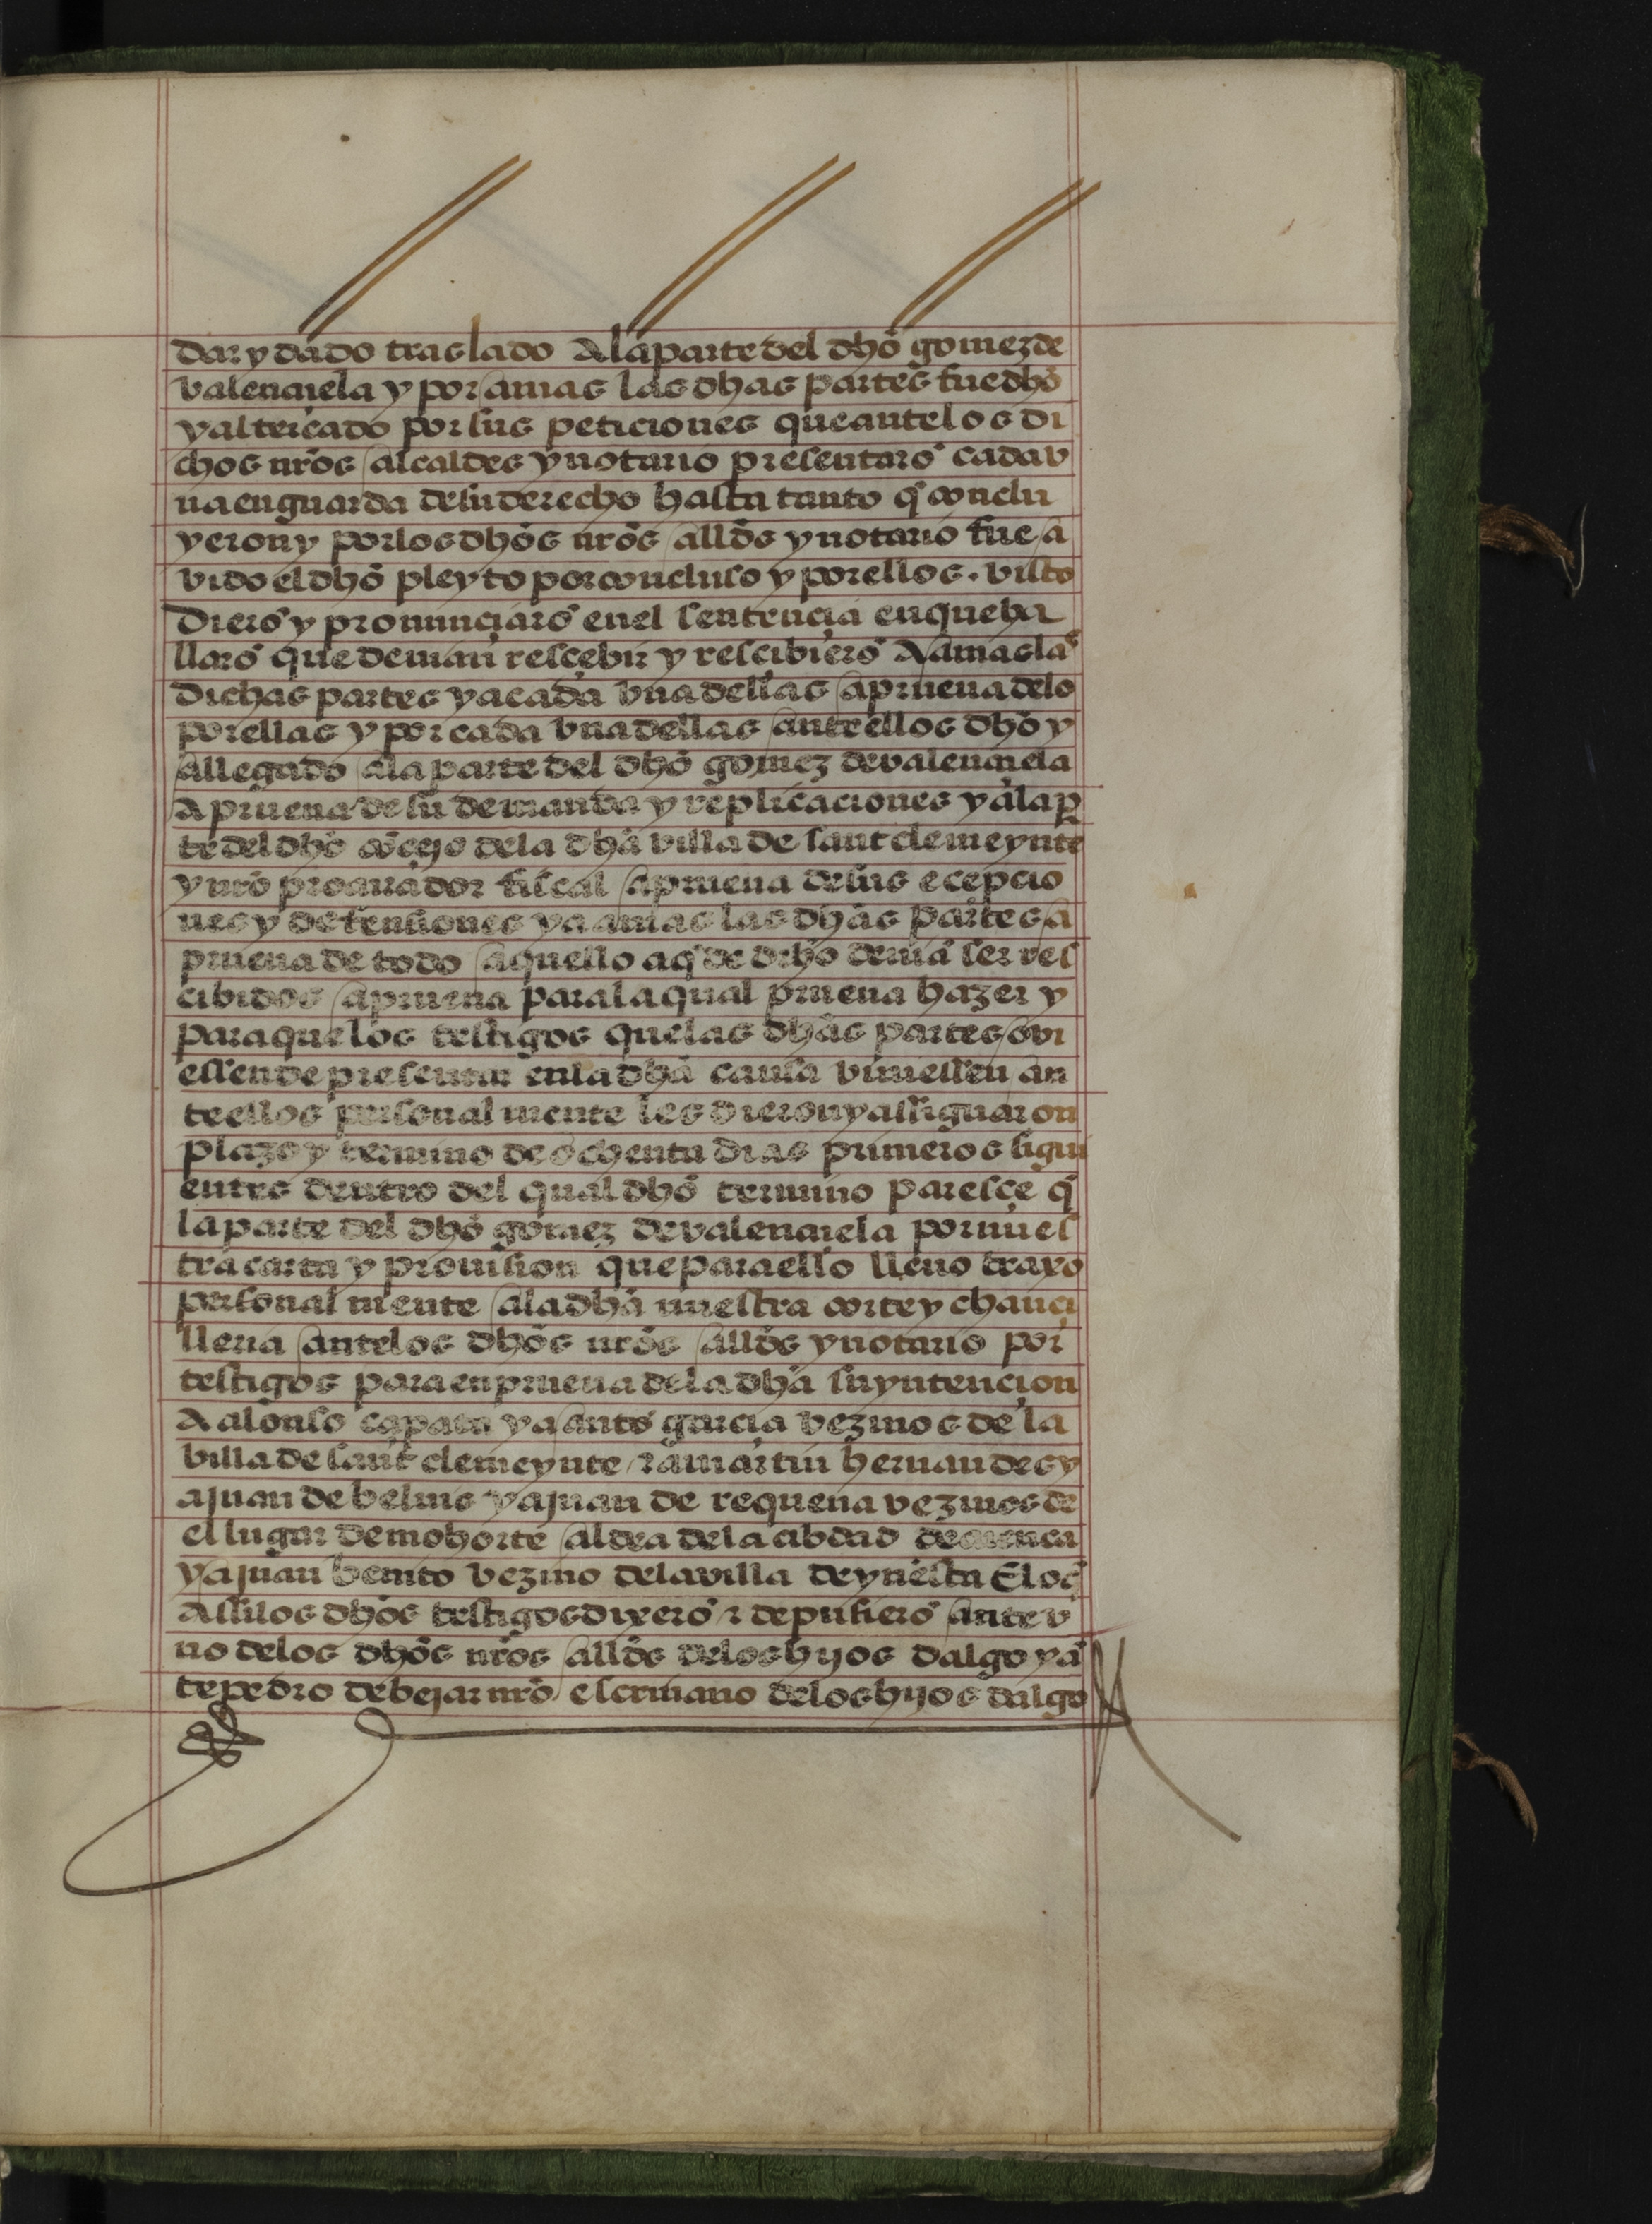 dar y dado traslado A la parte del dhō gomez de
valençuela y por amas las dhas partes fue dhō
y altercado por sus peticiones que ante los di
chos nrōs alcaldes y notario presentarō cada v
na en guarda de su derecho hasta tanto q̄ conclu
yeron y por los dhōs nrōs allōs y notario fue a
vido el dhō pleyto por concluso y por ellos . visto
dierō y pronunçiarō en el sentençia en que ha
llarō que devian resçebir y rescibierō A amas las
dichas partes y a cada vna dellas a prueva de lo
por ellas y por cada vna dellas ante ellos dhō y
allegado a la parte del dhō gomez de valençuela
A prueva de su demanda y replicaciones y a la p̱
te del dhō cōçejo de la dhā villa de sant clemeynte
y nrō procurador fiscal a prueva de sus ecepcio
nes y defensiones y a amas las dhās partes a
prueva de todo aquello a q̄ de drḥō devia ser res
cibidos a prueva para la qual prueva hazer y
para que los testigos que las dhās partes ovi
essen de presentar en la dhā causa viniessen an
te ellos personal mente les dieron y assignaron
plazo y termino de ochenta dias primeros sigui
entes dentro del qual dhō termino paresçe q̄
la parte del dhō gomez de valençuela por nues
tra carta y provision que para ello llevo traxo
personal mente a la dhā nuestra corte y chançi
lleria ante los dhōs nrōs allōs y notario por
testigos para en prueva de la dhā su yntençion
A alonso çapata y a antō garçia vezinos de la
villa de sant clemeynte ⁊ a martin hernandes y
a juan de belmis y a juan de requena vezinos de
el lugar de mohorte aldea de la cibdad de cuenca
y a juan benito vezino de la villa de yniesta E los q̄
Assi los dhōs testigos dixerō ⁊ depusierō ante v
no de los dhōs nrōs allōs de los hijos dalgo y ā
te pedro de bejar nrō escrivano de los hijos dalgo